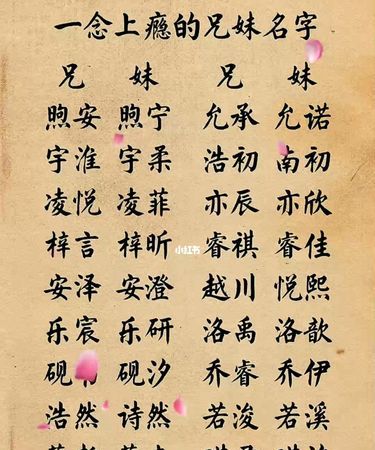 一念上瘾的兄妹名字
兄 妹 兄 妹
煦安 煦宁 允承 允诺
宇淮 宇柔 浩初 南初
凌悦 凌菲 亦辰 亦欣
梓言 梓昕 睿祺 睿佳
小红书
安泽 安澄 越川 悦熙
乐宸 乐研 洛禹 洛歆
砚 砚汐 乔睿 乔伊
浩然 诗然 若浚 若溪